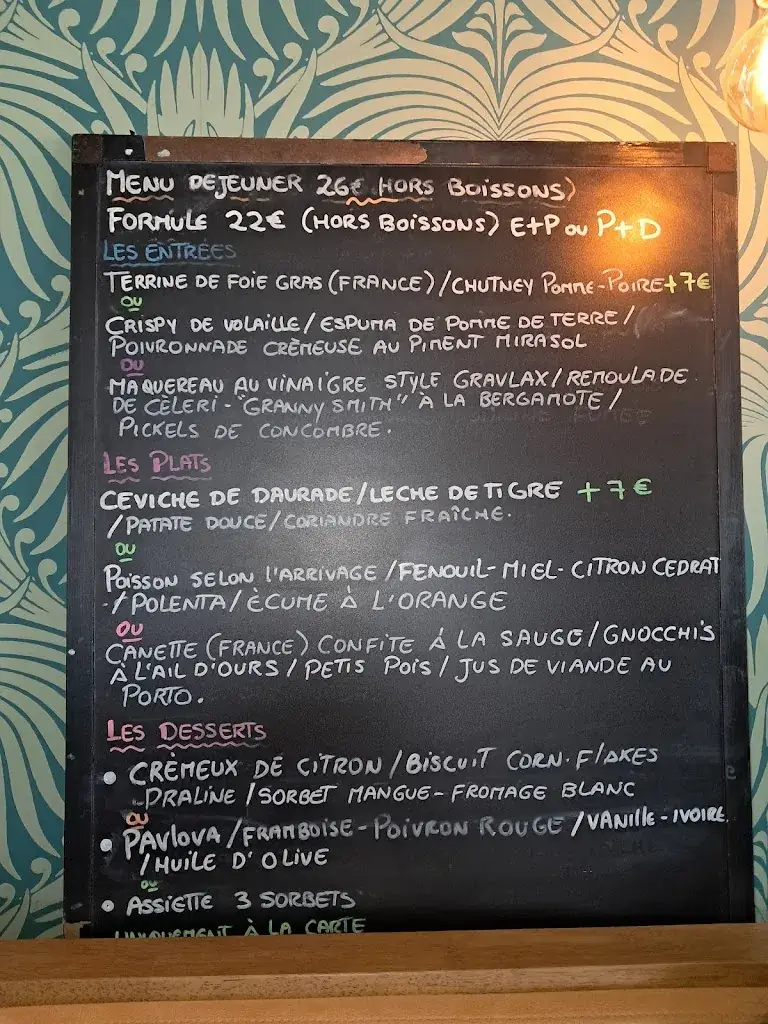 MENU DEJEUNER 26€ HORS BOISSONS)
FORMULE 22€ (HORS BOISSONS) E+P OU P+D
LES ENTRÉES
TERRINE DE FOIE GRAS (FRANCE) / CHUTNEY POMME-POIRE +7€
OU
CRISPY DE VOLAILLE / ESPUMA DE POMME DE TERRE /
POIVRONNADE CRÈMEUSE AU PIMENT MIRASOL
OU
MAQUEREAU AU VINAIGRE STYLE GRAVLAX / REMOULADE
DE CÈLERI - "GRANNY SMITH" À LA BERGAMOTE /
PICKELS DE CONCOMBRE.
LES PLATS
CEVICHE DE DAURADE / LECHE DE TIGRE +7€
/ PATATE DOUCE / CORIANDRE FRAÎCHE.
OU
POISSON SELON L'ARRIVAGE / FENOUIL - MIEL - CITRON CEDRAT
- / POLENTA / ÈCUME À L'ORANGE
OU
CANETTE (FRANCE) CONFITE À LA SAUGE / GNOCCHIS
À L'AIL D'OURS / PETIS POIS / JUS DE VIANDE AU
PORTO.
LES DESSERTS
• CRÈMEUX DE CITRON / BISCUIT CORN. FLAKES
- PRALINE / SORBET MANGUE - FROMAGE BLANC
OU
• PAVLOVA / FRAMBOISE - POIVRON ROUGE / VANILLE - IVOIRE
/ HUILE D'OLIVE
OU
• ASSIETTE 3 SORBETS
UNIQUEMENT À LA CARTE